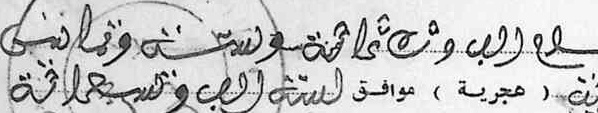 الف وثلاثمائة وستة وثمانين
( هجرية ) موافق لسنة الف وتسعمائة